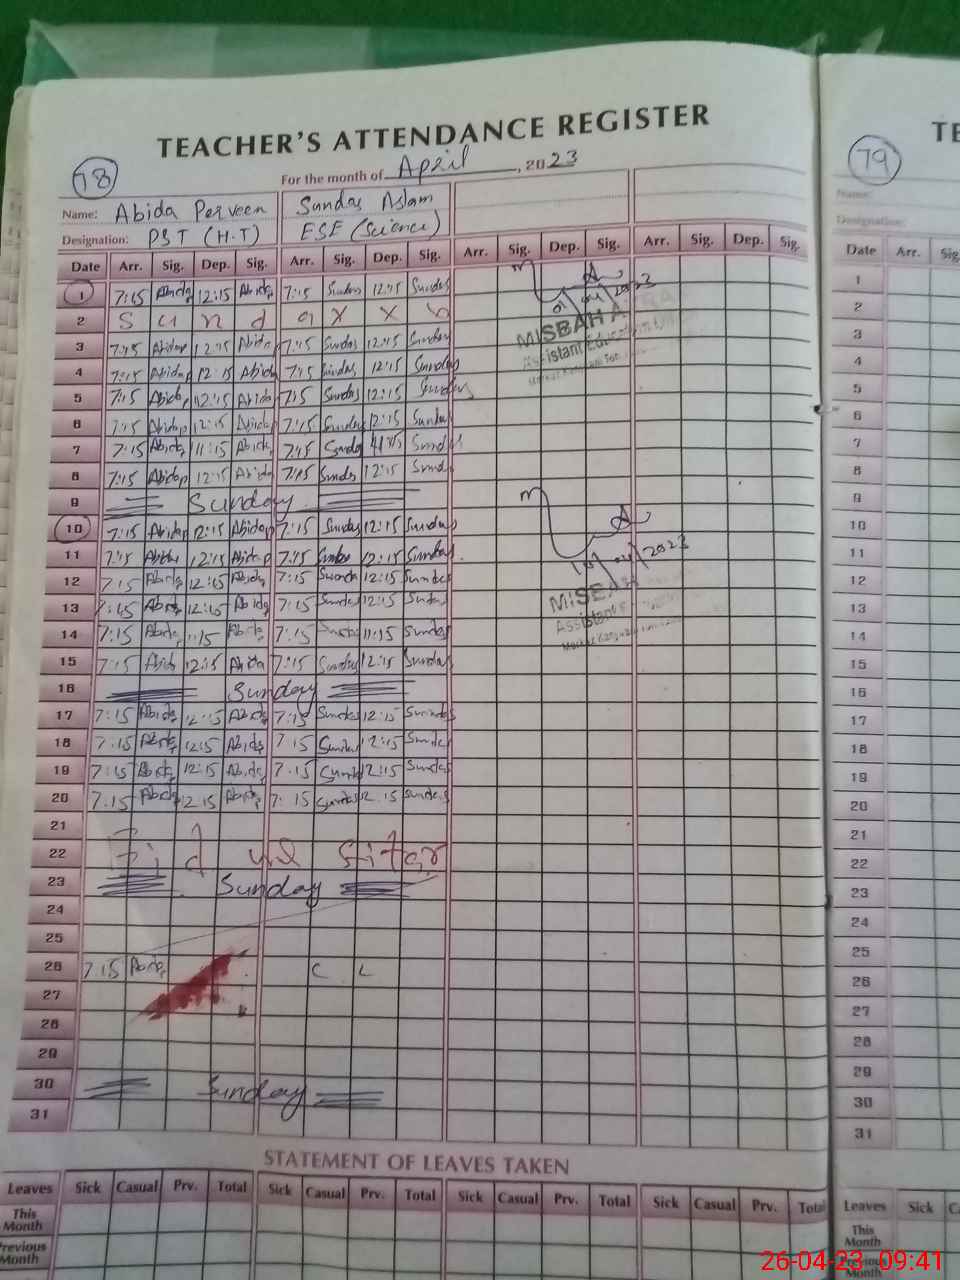 TEACHER'S ATTENDANCE REGISTER
78
For the month of April, 2023
Name: Abida Perveen Sundas Aslam
Designation: PST (H.T) ESE (Science)
Date Arr. Sig. Dep. Sig. Arr. Sig. Dep. Sig. Arr. Sig. Dep. Sig. Arr. Sig. Dep. Sig.
1 7:15 Abida 12:15 Abida 7:15 Sundas 12:15 Sundas
2 S u n d a x x
3 7:15 Abidap 12:15 Abida 7:15 Sundas 12:15 Sundas
4 7:15 Abidap 12:15 Abida 7:15 Sundas 12:15 Sundas
5 7:15 Abidap 12:15 Abida 7:15 Sundas 12:15 Sundas
6 7:15 Abidap 12:15 Abida 7:15 Sundas 12:15 Sundas
7 7:15 Abida 11:15 Abida 7:15 Sundas 11:15 Sundas
8 7:15 Abidap 12:15 Abida 7:15 Sundas 12:15 Sundas
9 Sunday
10 7:15 Abidap 12:15 Abidap 7:15 Sundas 12:15 Sundas
11 7:15 Abida 12:15 Abidap 7:15 Sundas 12:15 Sundas
12 7:15 Abida 12:15 Abida 7:15 Sundas 12:15 Sundas
13 7:15 Abida 12:15 Abida 7:15 Sundas 12:15 Sundas
14 7:15 Abida 11:15 Abida 7:15 Sundas 11:15 Sundas
15 7:15 Abida 12:15 Abida 7:15 Sundas 12:15 Sundas
16 Sunday
17 7:15 Abida 12:15 Abida 7:15 Sundas 12:15 Sundas
18 7:15 Abida 12:15 Abida 7:15 Sundas 12:15 Sundas
19 7:15 Abida 12:15 Abida 7:15 Sundas 12:15 Sundas
20 7:15 Abida 12:15 Abida 7:15 Sundas 12:15 Sundas
21
22 Eid ul fitar
23 Sunday
24
25
26 7:15 Abida C L
27
28
29
30 Sunday
31
01/04/2023
MISBAH
Assistant Education
10/04/2023
MISBAH
Assistant
STATEMENT OF LEAVES TAKEN
Leaves Sick Casual Prv. Total Sick Casual Prv. Total Sick Casual Prv. Total Sick Casual Prv. Total
This Month
Previous Month
79
TE
Name:
Designation:
Date Arr. Sig.
1
2
3
4
5
6
7
8
9
10
11
12
13
14
15
16
17
18
19
20
21
22
23
24
25
26
27
28
29
30
31
Leaves Sick
This Month
Previous Month
26-04-23 09:41